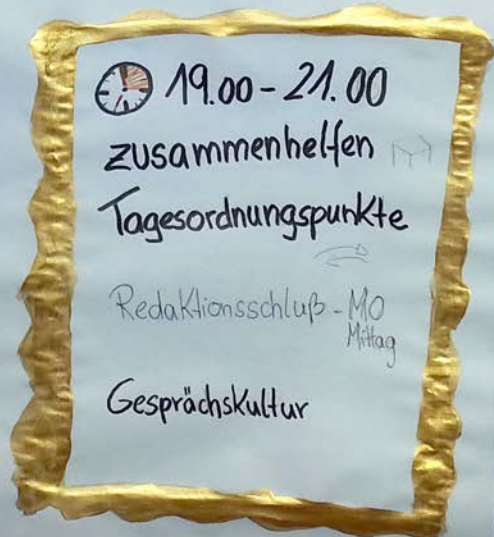 19.00 - 21.00
zusammenhelfen
Tagesordnungspunkte
Redaktionsschluß - MO
Mittag
Gesprächskultur